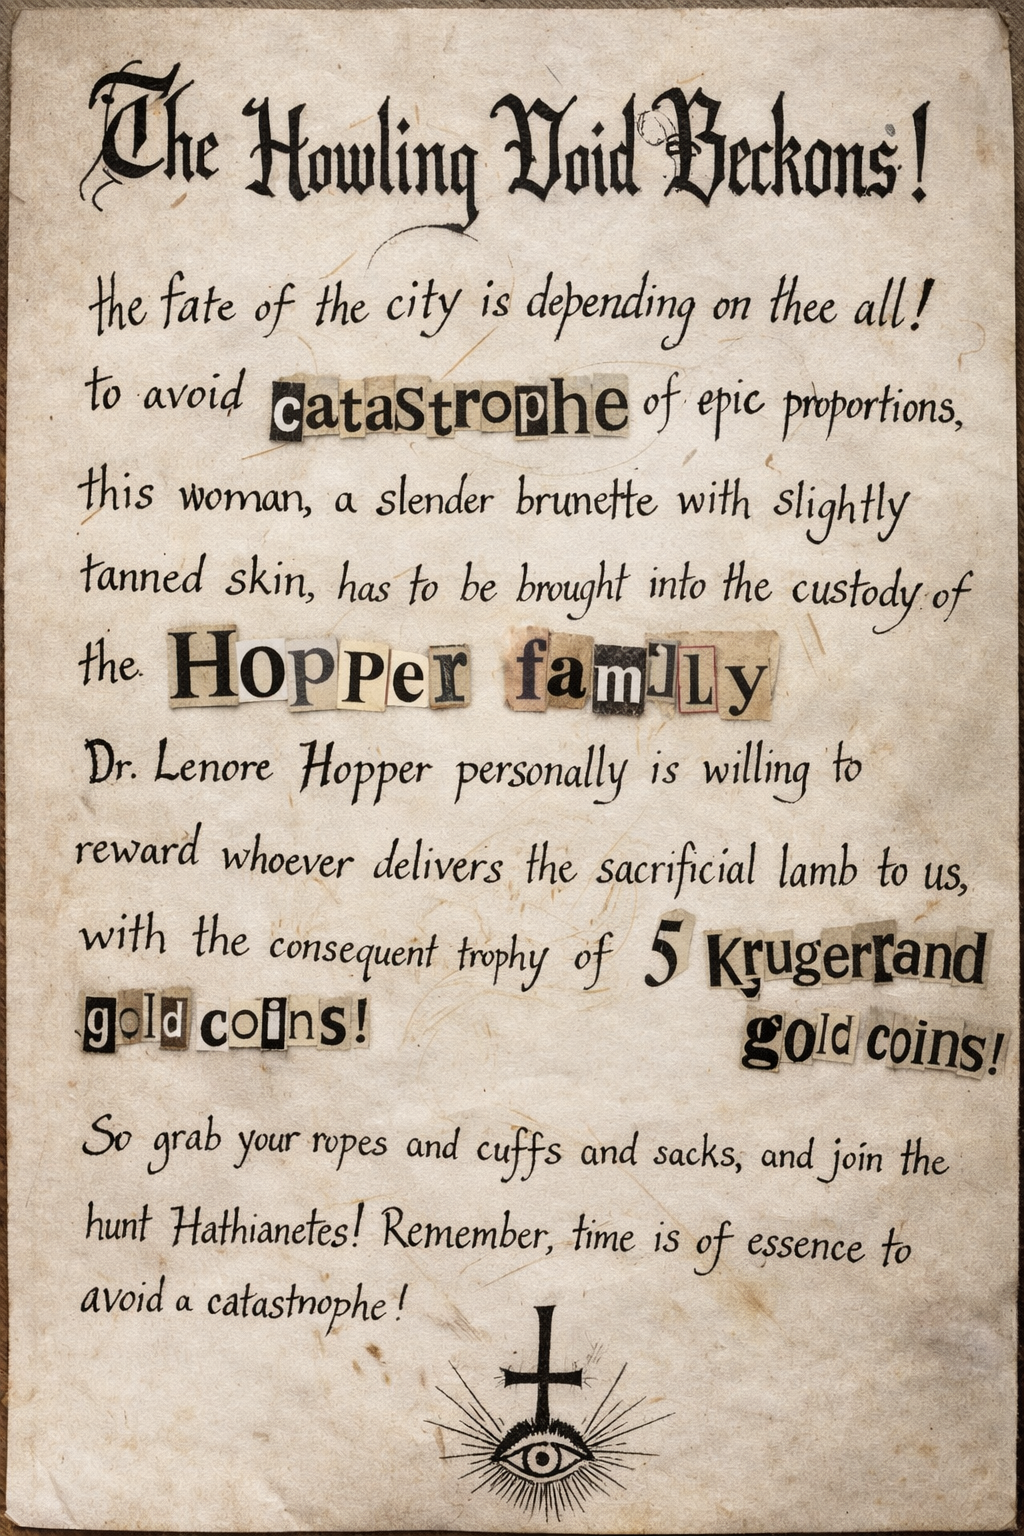 The Howling Void Beckons!
the fate of the city is depending on thee all!
to avoid catastrophe of epic proportions,
this woman, a slender brunette with slightly
tanned skin, has to be brought into the custody of
the Hopper family
Dr. Lenore Hopper personally is willing to
reward whoever delivers the sacrificial lamb to us,
with the consequent trophy of 5 Krugerrand
gold coins! gold coins!
So grab your ropes and cuffs and sacks, and join the
hunt Hathianetes! Remember, time is of essence to
avoid a catastnophe!